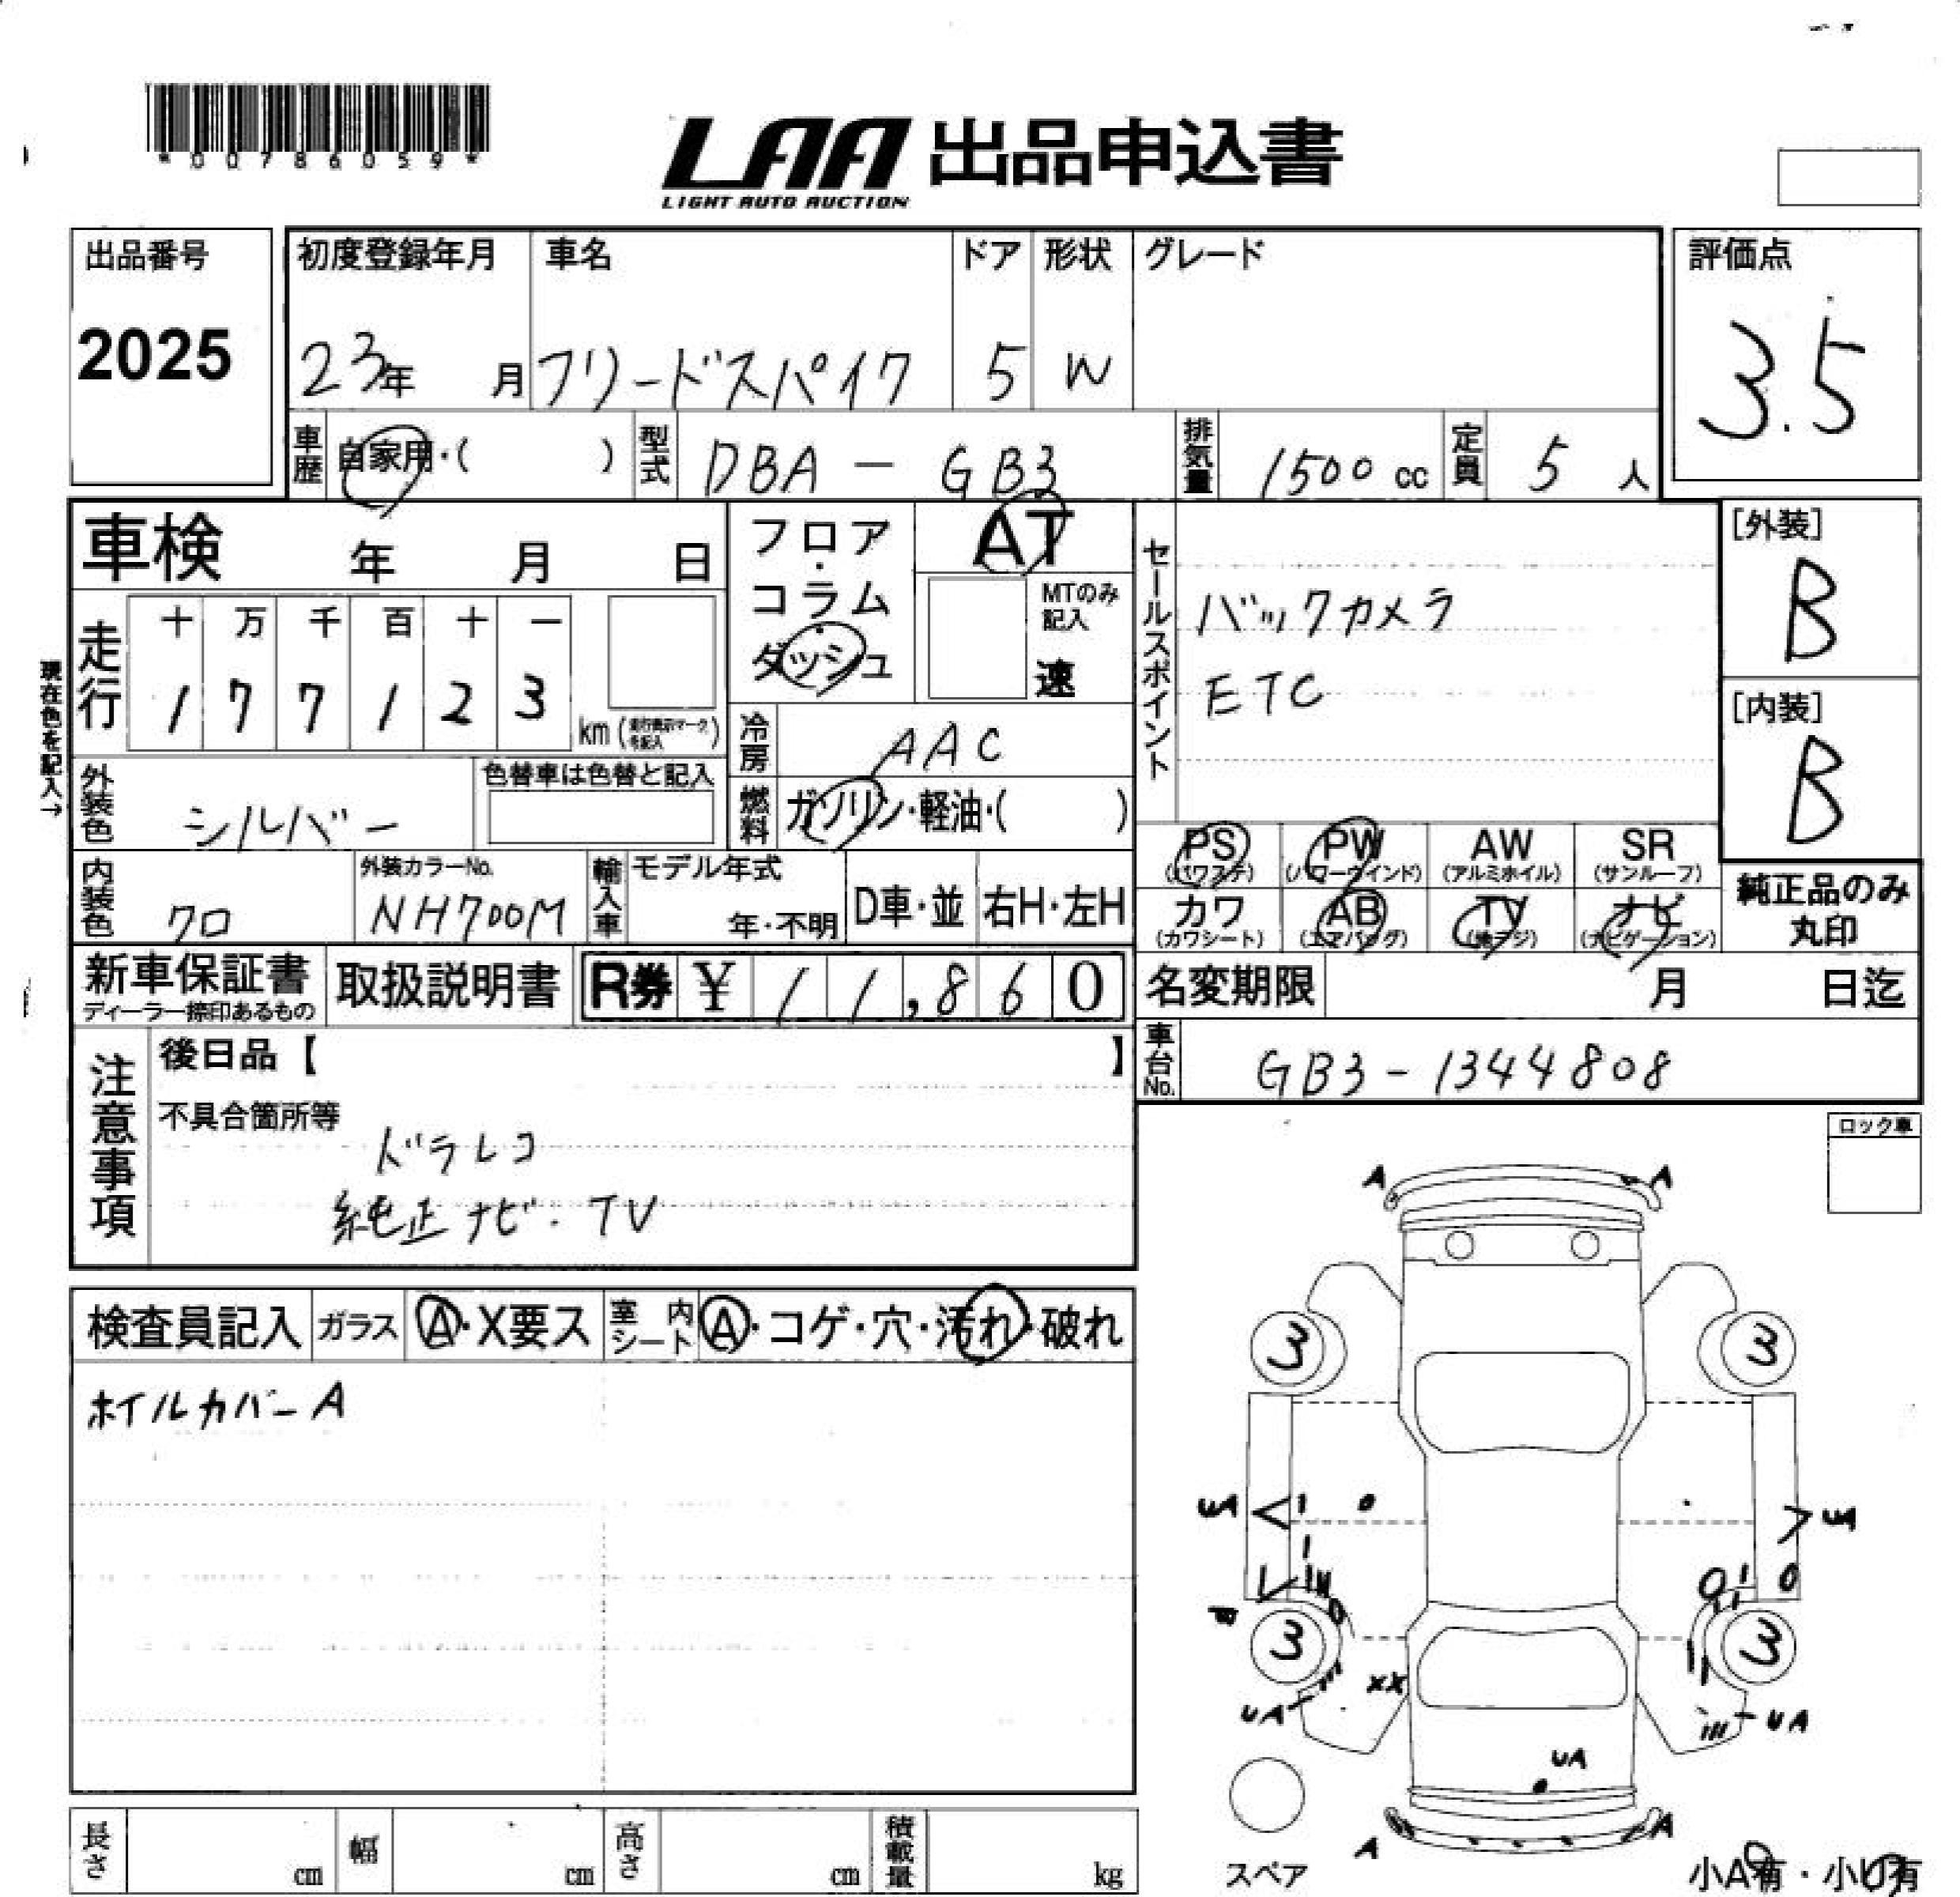 *00786059*
LAA 出品申込書
LIGHT AUTO AUCTION
出品番号
2025
初度登録年月
23年 月
車名
フリードスパイク
ドア
5
形状
W
グレード
評価点
3.5
車歴 自家用・( )
型式 DBA - GB3
排気量 1500 cc
定員 5 人
車検 年 月 日
フロア・コラム・ダッシュ
AT
MTのみ記入
速
セールスポイント
バックカメラ
ETC
[外装]
B
[内装]
B
現在色を記入→
走行
十 万 千 百 十 一
1 7 7 1 2 3
km (走行表示マークを記入)
冷房 AAC
外装色 シルバー
色替車は色替と記入
燃料 ガソリン・軽油・( )
PS (パワステ)
PW (パワーウインド)
AW (アルミホイル)
SR (サンルーフ)
内装色 クロ
外装カラーNo.
NH700M
輸入車 モデル年式
年・不明
D車・並
右H・左H
カワ (カワシート)
AB (エアバッグ)
TV (地デジ)
ナビ (ナビゲーション)
純正品のみ
丸印
新車保証書
ディーラー捺印あるもの
取扱説明書
R券 ¥ 11,860
名変期限 月 日迄
注意事項
後日品【 】
車台No. GB3-1344808
不具合箇所等
ドラレコ
純正ナビ・TV
ロック車
検査員記入
ガラス A・X要ス
室内シート A・コゲ・穴・汚れ・破れ
ホイルカバーA
A A
3 3
3 3
UA
XX
UA
UA
A A
スペア
小A有・小U有
長さ cm
幅 cm
高さ cm
積載量 kg